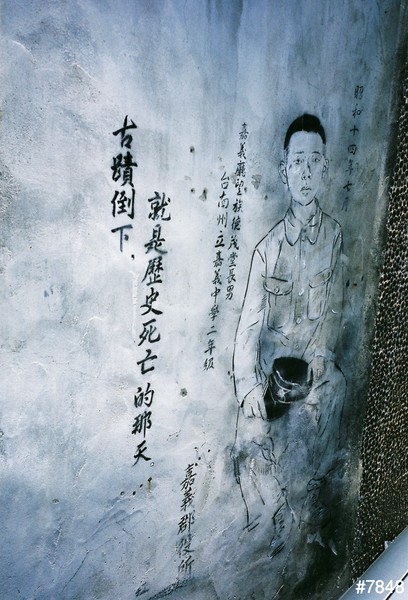 古蹟倒下,
就是歷史死亡的那天。...
昭和十四年七月
嘉義廳望族德茂堂長男
台南州立嘉義中學二年級
嘉義郡役所
#7848